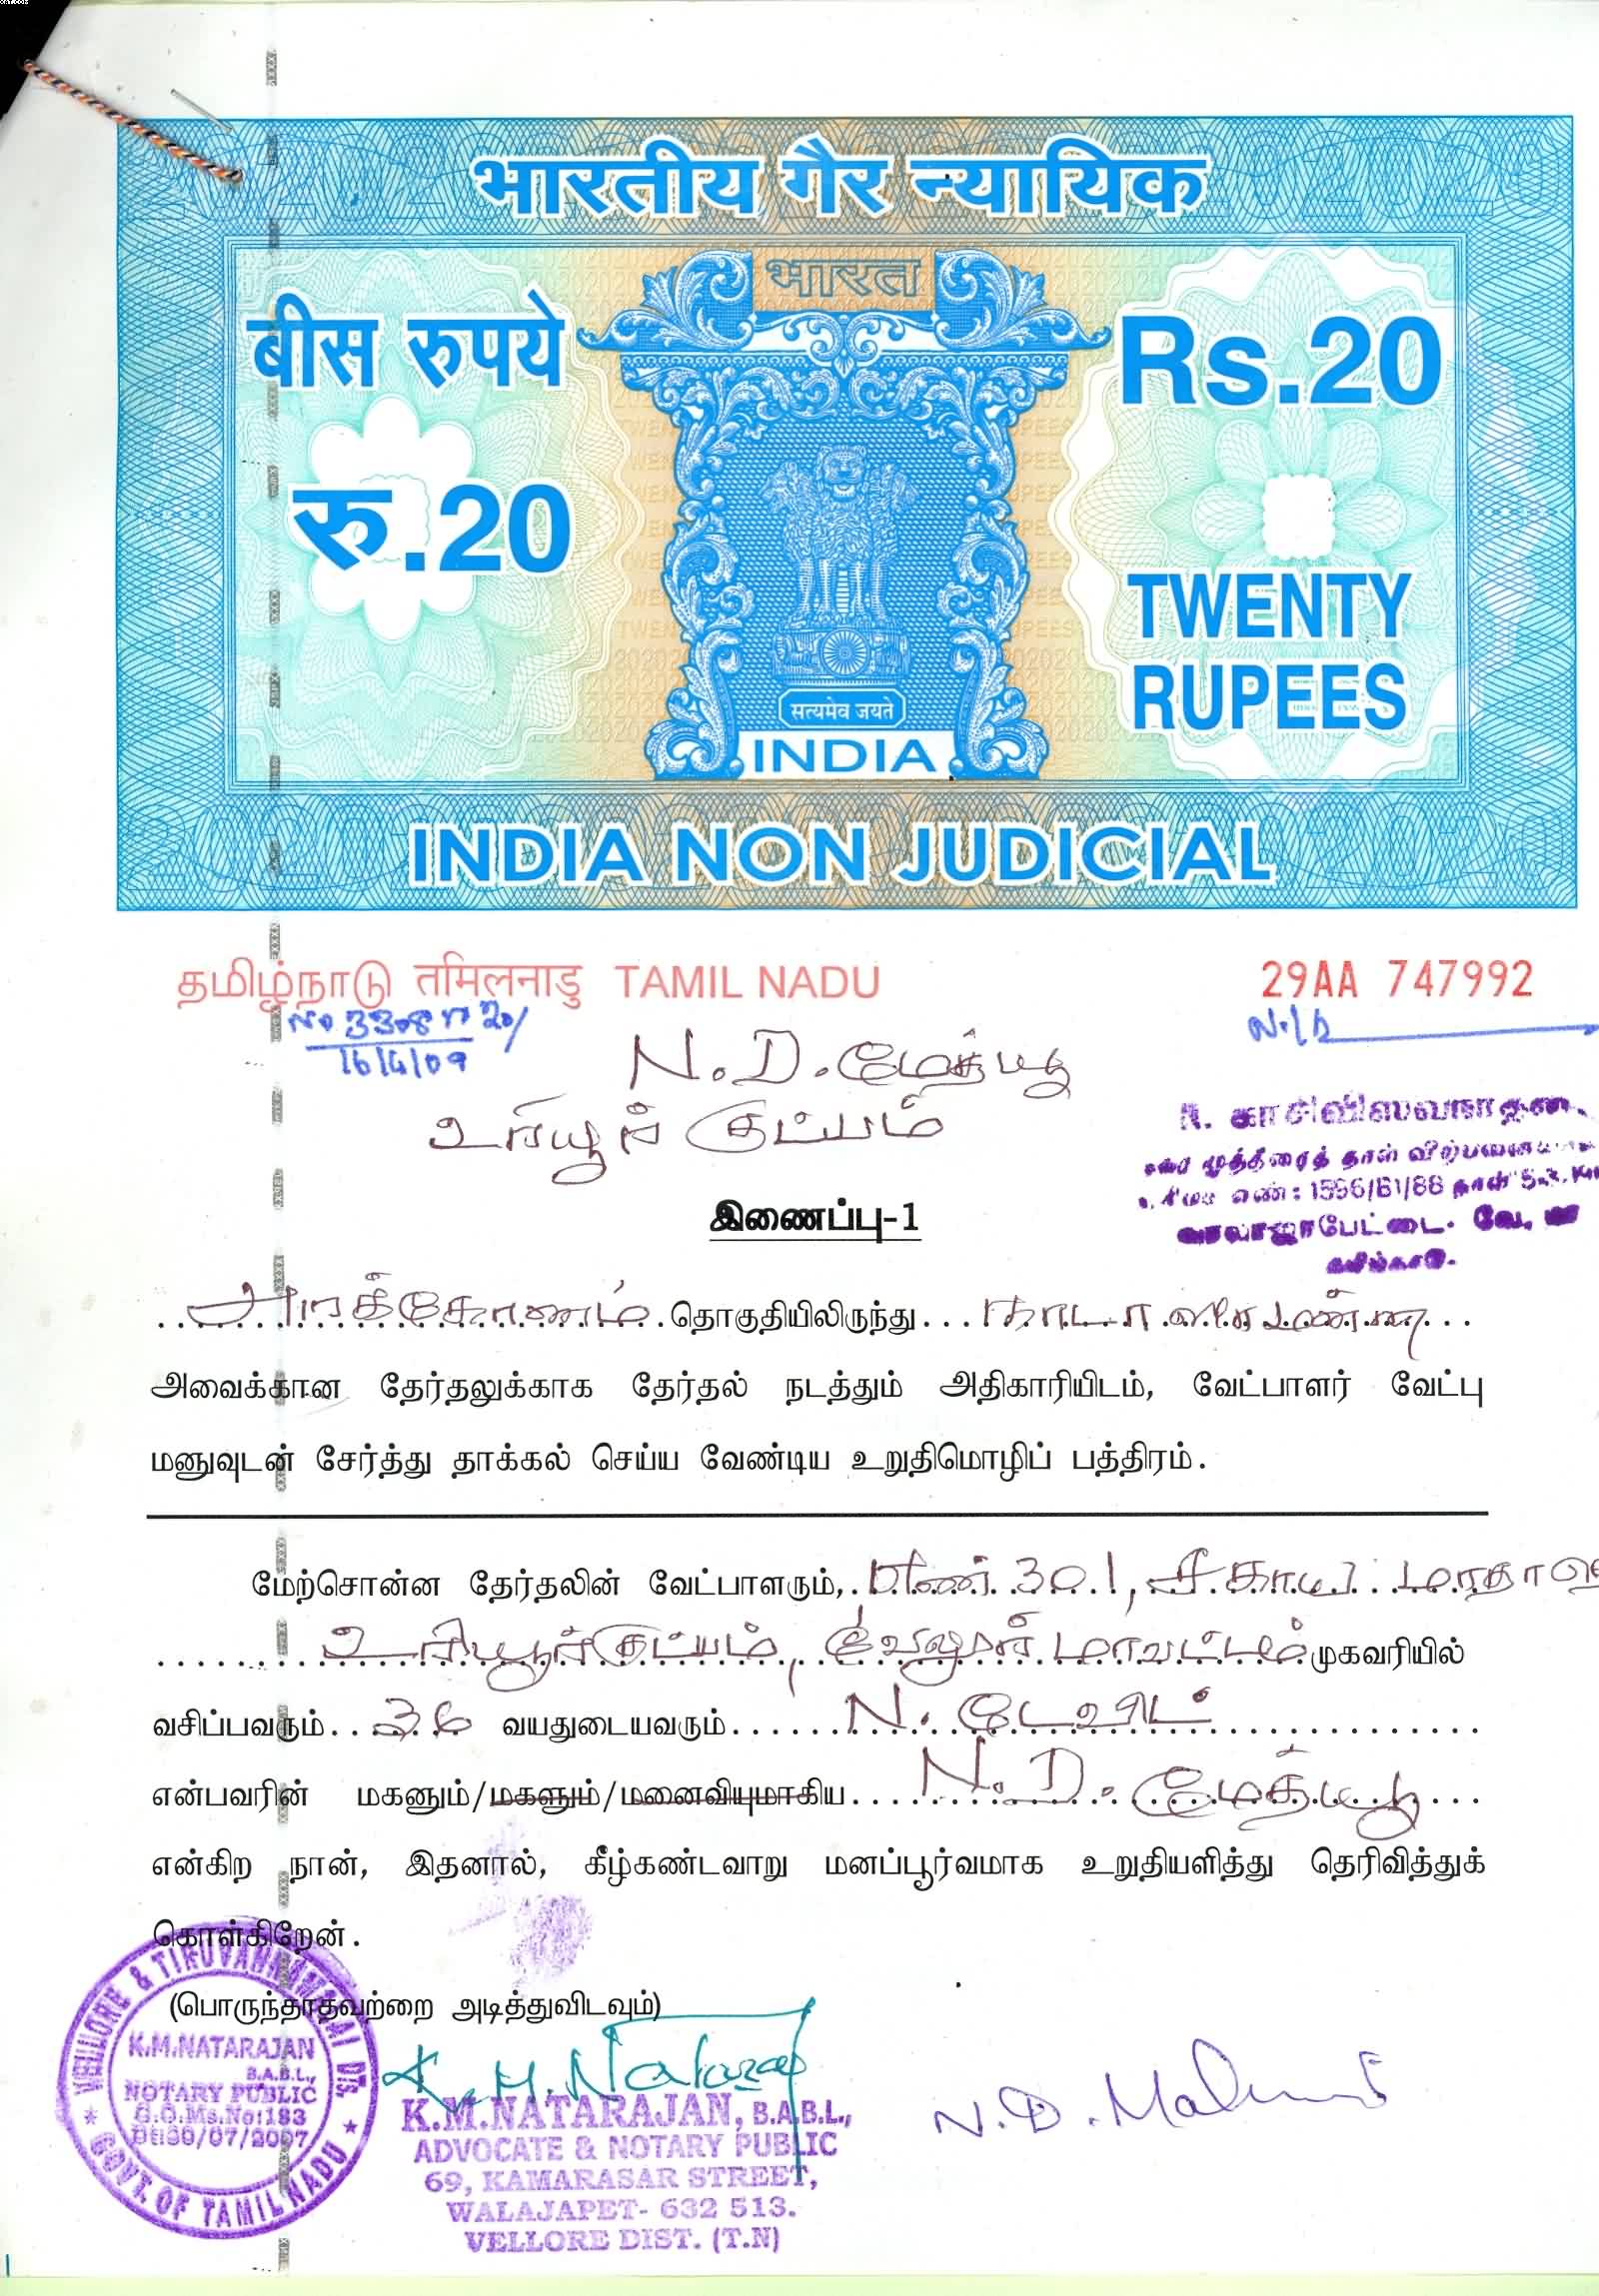 भारतीय गैर न्यायिक
भारत
बीस रुपये
Rs.20
रु.20
TWENTY
RUPEES
सत्यमेव जयते
INDIA
INDIA NON JUDICIAL
தமிழ்நாடு तमिलनाडु TAMIL NADU
29AA 747992
No 3308 20/
16/4/09
N.D. மேத்யூ
உரியூர் குப்பம்
N. காசிவிஸ்வநாதன்
முத்திரைத் தாள்
எண்: 1596/B1/88
வாலாஜாபேட்டை. வே.
இணைப்பு-1
அரக்கோணம் தொகுதியிலிருந்து
அவைக்கான தேர்தலுக்காக தேர்தல் நடத்தும் அதிகாரியிடம், வேட்பாளர் வேட்பு
மனுவுடன் சேர்த்து தாக்கல் செய்ய வேண்டிய உறுதிமொழிப் பத்திரம்.
மேற்சொன்ன தேர்தலின் வேட்பாளரும், 301,
உரியூர்குப்பம், வேலூர் மாவட்டம் முகவரியில்
வசிப்பவரும் 36 வயதுடையவரும் N. டேவிட்
என்பவரின் மகனும்/மகளும்/மனைவியுமாகிய N.D. மேத்யூ
என்கிற நான், இதனால், கீழ்கண்டவாறு மனப்பூர்வமாக உறுதியளித்து தெரிவித்துக்
கொள்கிறேன்.
(பொருந்தாதவற்றை அடித்துவிடவும்)
VELLORE & TIRUVANNAMALAI Dts
K.M.NATARAJAN
B.A.B.L.,
NOTARY PUBLIC
G.O.Ms.No:183
Dt:30/07/2007
GOVT. OF TAMIL NADU
K.M.Natarajan
K.M.NATARAJAN, B.A.B.L.,
ADVOCATE & NOTARY PUBLIC
69, KAMARASAR STREET,
WALAJAPET- 632 513.
VELLORE DIST. (T.N)
N.D.